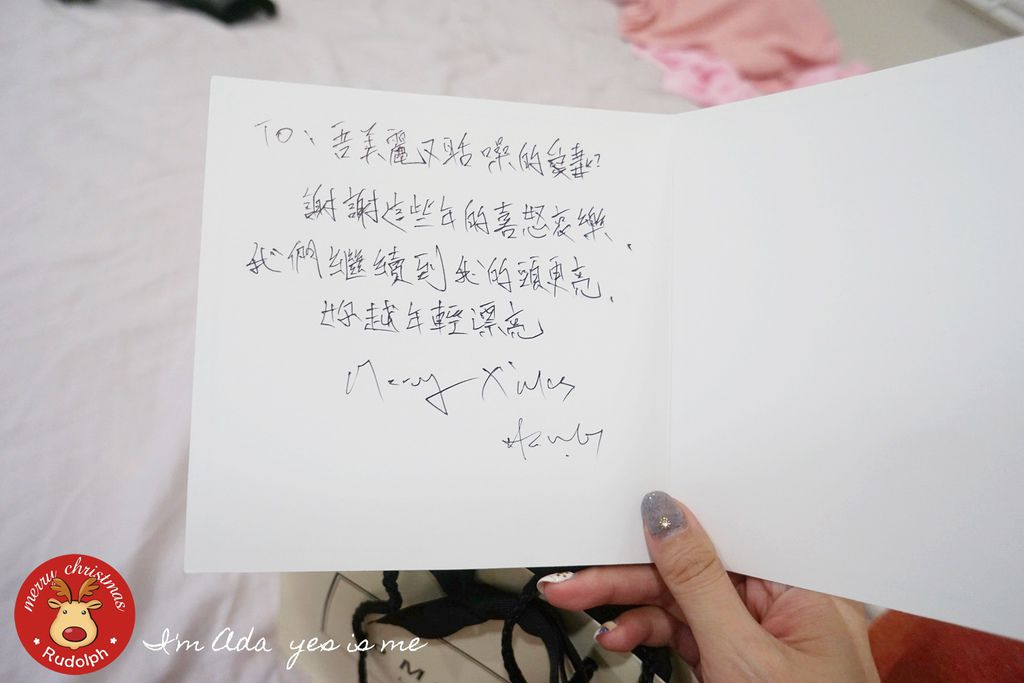 TO: 吾美麗又聒噪的愛妻
謝謝這些年的喜怒哀樂.
我們繼續到我的頭更亮.
妳越年輕漂亮
Merry X'mas
merry christmas
Rudolph
I'm Ada yes is me
M